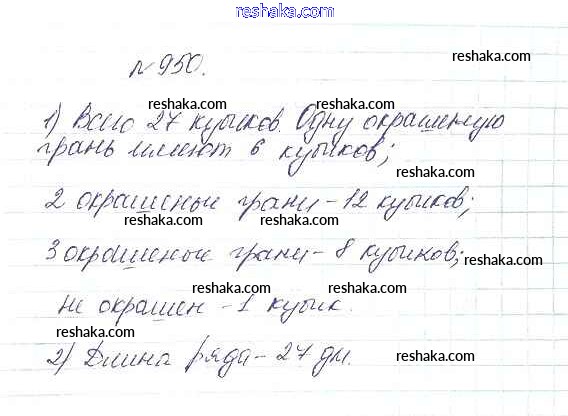 reshaka.com
№950.
1) Всего 27 кубиков. Одну окрашеную
грань имеют 6 кубиков;
2 окрашеные грани - 12 кубиков;
3 окрашеные грани - 8 кубиков;
не окрашен - 1 кубик.
2) Длина ряда - 27 дм.
reshaka.com
reshaka.com
reshaka.com
reshaka.com
reshaka.com
reshaka.com
reshaka.com
reshaka.com
reshaka.com
reshaka.com
reshaka.com
reshaka.com
reshaka.com